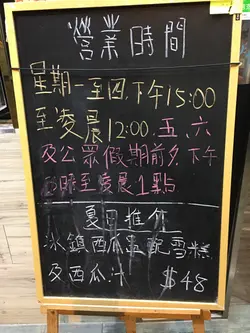 營業時間
星期一至四,下午15:00
至凌晨12:00,五、六
及公眾假期前夕,下午
時至凌晨1點
夏日推介
冰鎮西瓜盅配雪糕
及西瓜汁 $48